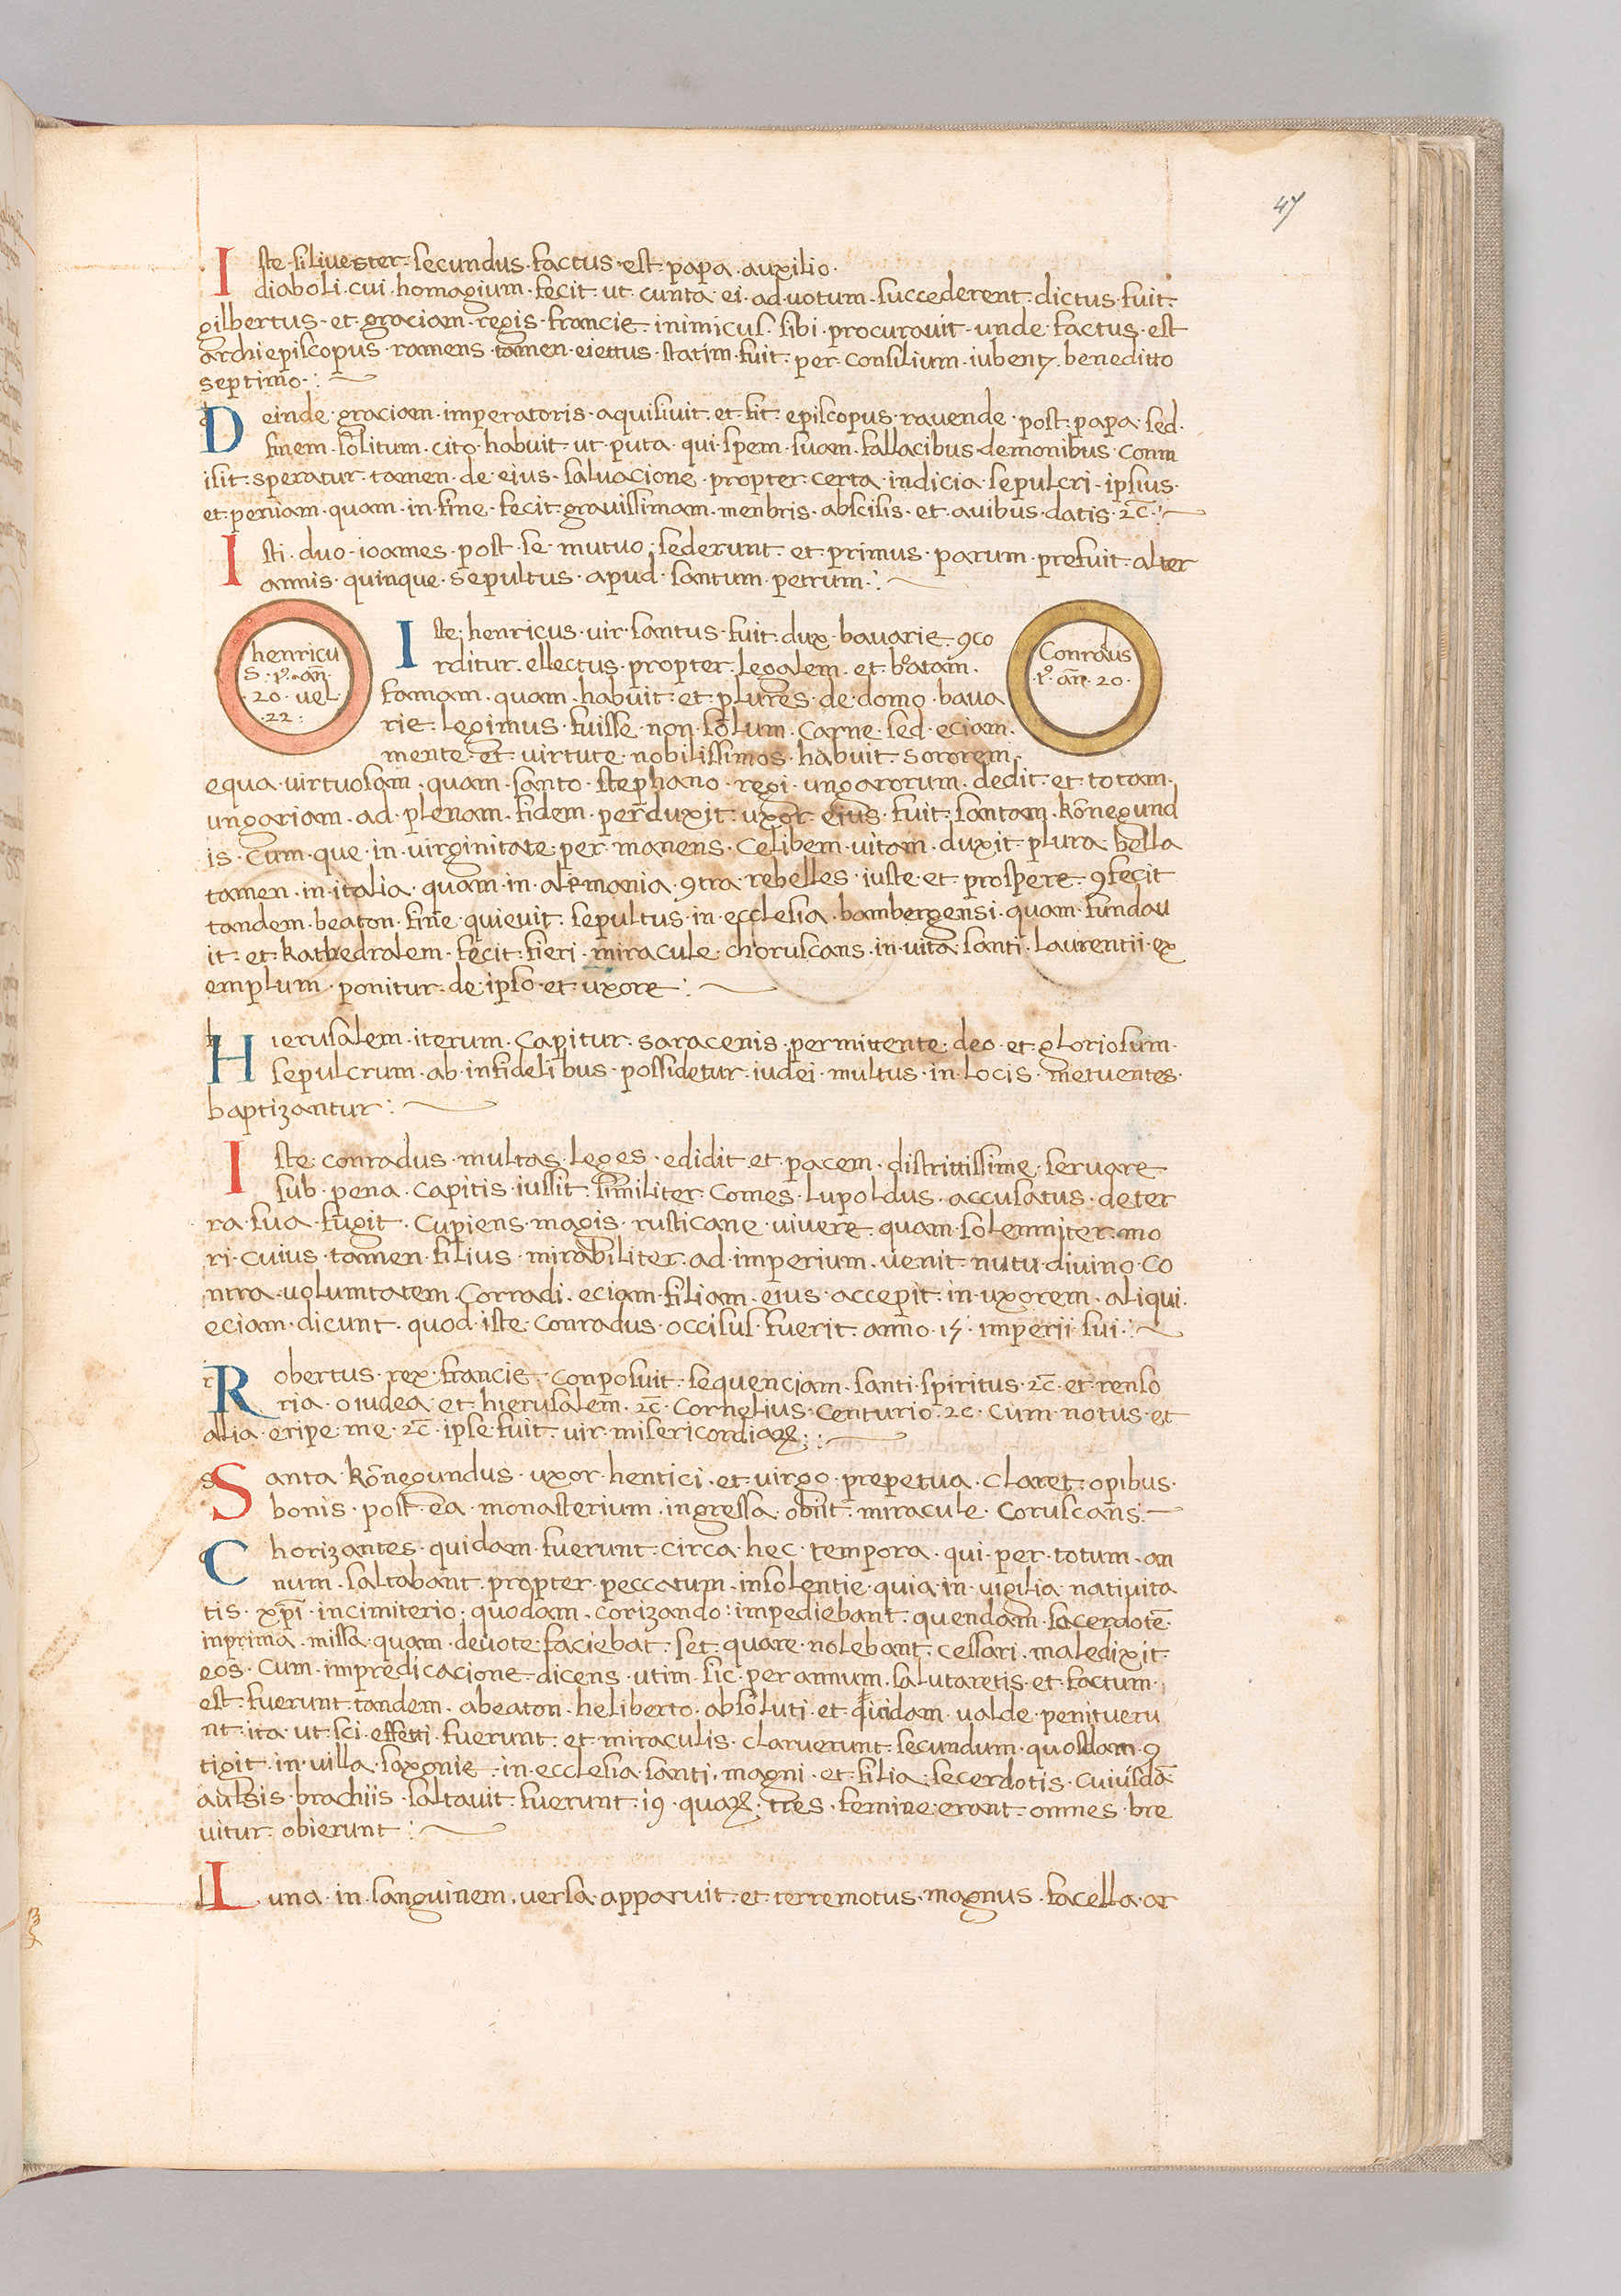 47
Iste · silivester · secundus · factus · est · papa · auxilio ·
diaboli · cui · homagium · fecit · ut · cuncta · ei · ad · uotum · succederent · dictus · fuit ·
gilbertus · et · graciam · regis · francie · inimicus · sibi · procurauit · unde · factus · est
archiepiscopus · ramens · tamen · eiettus · statim · fuit · per · consilium · iubent · beneditto
septimo ·
Deinde · graciam · imperatoris · aquisiuit · et · fit · episcopus · rauende · post · papa · sed ·
finem · solitum · cito · habuit · ut · puta · qui · spem · suam · fallacibus · demonibus · conm
isit · speratur · tamen · de · eius · saluacione · propter · certa · indicia · sepulcri · ipsius ·
et · peniam · quam · in · fine · fecit · grauissimam · menbris · abscisis · et · auibus · datis · 2c̄ ·
Isti · duo · ioames · post · se · mutuo · sederunt · et · primus · parum · prefuit · alter
annis · quinque · sepultus · apud · santum · petrum ·
henricu
s · r̊ · an̄ ·
· 20 · uel
· 22 ·
Iste · henricus · uir · santus · fuit · dux · bauarie · 9co
rditur · ellectus · propter · legalem · et · b̊atam ·
famam · quam · habuit · et · plures · de · domo · baua
rie · legimus · fuisse · non · solum · carne · sed · eciam ·
mente · et · virtute · nobilissimos · habuit · sororem ·
Conradus
· r̊ · an̄ · 20 ·
equa · virtuosam · quam · santo · stephano · regi · ungarorum · dedit · et · totam ·
ungariam · ad · plenam · fidem · perduxit · uxor · eius · fuit · santam · kōnegund
is · cum · que · in · virginitate · per · manens · celibem · uitam · duxit · plura · bella
tamen · in · italia · quam · in · alemania · 9tra · rebelles · iuste · et · prospere · 9fecit
tandem · beaton · fine · quieuit · sepultus · in · ecclesia · bambergensi · quam · fundau
it · et · kathedralem · fecit · fieri · miracule · choruscans · in · uita · santi · laurentii · ex
emplum · ponitur · de · ipso · et · uxore ·
Hierusalem · iterum · capitur · saracenis · permittente · deo · et · gloriosum ·
sepulcrum · ab · infidelibus · possidetur · iudei · multus · in · locis · metuentes ·
baptizantur ·
Iste · conradus · multas · leges · edidit · et · pacem · distrittissime · seruare
sub · pena · capitis · iussit · similiter · comes · lupoldus · accusatus · de ter
ra · sua · fugit · cupiens · magis · rusticane · uiuere · quam · solemniter · mo
ri · cuius · tamen · filius · mirabiliter · ad · imperium · uenit · nutu · diuino · co
ntra · uolumtatem · corradi · eciam · filiam · eius · accepit · in · uxorem · aliqui ·
eciam · dicunt · quod · iste · conradus · occisus · fuerit · anno · 15 · imperii · sui ·
Robertus · rex · francie · conposuit · sequenciam · santi · spiritus · 2c̄ · et · renso
ria · o iudea · et · hierusalem · 2c̄ · cornelius · centurio · 2c · cum · notus · et
alia · eripe · me · 2c̄ · ipse · fuit · uir · misericordiaꝝ ·
Santa · kōnegundus · uxor · hentici · et · virgo · prepetua · claret · opibus ·
bonis · post · ea · monasterium · ingressa · obiit · miracule · coruscans ·
Chorizantes · quidam · fuerunt · circa · hec · tempora · qui · per · totum · an
num · saltabant · propter · peccatum · insolentie · quia · in · vigilia · natiuita
tis · xp̄i · incimiterio · quodam · corizando · impediebant · quendam · sacerdotē ·
inprima · missa · quam · deuote · faciebat · set · quare · nolebant · cessari · maledixit ·
eos · cum · impredicacione · dicens · utim · sic · per · annum · salutaretis · et · factum ·
est · fuerunt · tandem · abeaton · heliberto · absoluti · et · quidam · ualde · penitueru
nt · ita · ut · sci · effetti · fuerunt · et · miraculis · claruerunt · secundum · quosdam · 9
tigit · in · uilla · saxonie · in · ecclesia · santi · magni · et · filia · secerdotis · cuiusdā
aulsis · brachiis · saltauit · fuerunt · i9 · quaꝝ · tres · femine · erant · omnes · bre
uitur · obierunt ·
Luna · in · sanguinem · uersa · apparuit · et · terremotus · magnus · facella · ar